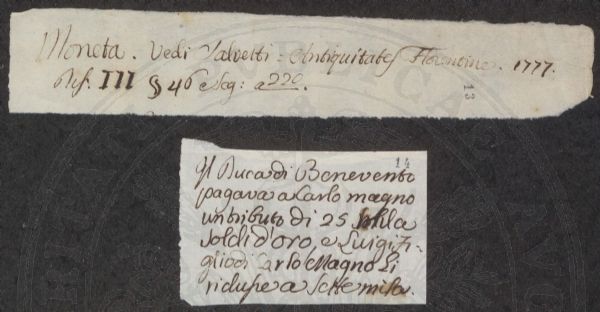 Moneta. Vedi Salvetti = Antiquitates Florentine. 1777.
Diss. III § 46 e seg: a 220.
13
14
Il Duca di Benevento
pagava a Carlo magno
un tributo di 25 mila
soldi d'oro, e Luigi Fi-
glio di Carlo Magno li
ridusse a Settemila.